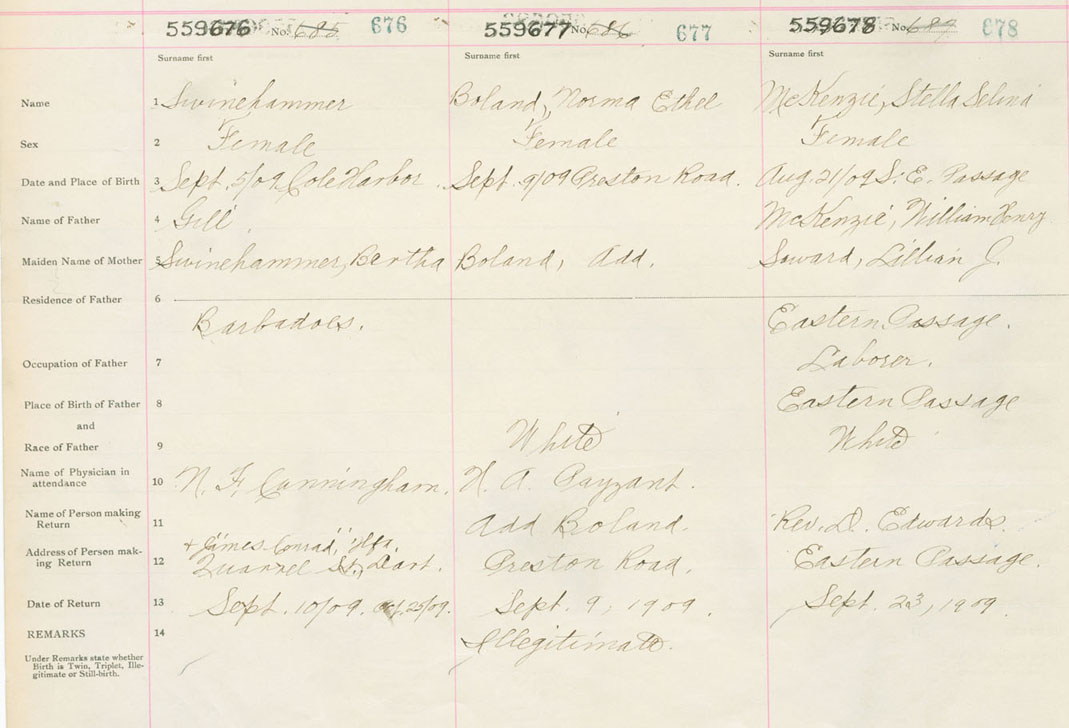 559676 No. 685 676 559677 No. 686 677 559678 No. 687 678
Surname first Surname first Surname first
Name 1 Swinehammer Boland, Norma Ethel McKenzie, Stella Selina
Sex 2 Female Female Female
Date and Place of Birth 3 Sept. 5/09 Cole Harbor. Sept. 9/09 Preston Road. Aug 21/09 S. E. Passage
Name of Father 4 Gill. McKenzie, William Henry
Maiden Name of Mother 5 Swinehammer, Bertha Boland, Add. Soward, Lillian J.
Residence of Father 6
Barbadoes. Eastern Passage.
Occupation of Father 7 Laborer.
Place of Birth of Father 8 Eastern Passage
and
Race of Father 9 White White
Name of Physician in
attendance 10 N. F. Cunningham. H. A. Payzant.
Name of Person making
Return 11 Add Boland. Rev. D. Edwards.
+ James Conrad, Hfx.
Address of Person mak-
ing Return 12 Quarrel St., Dart. Preston Road. Eastern Passage.
Date of Return 13 Sept. 10/09. 25/09. Sept. 9, 1909. Sept. 23, 1909
REMARKS 14 Illegitimate.
Under Remarks state whether
Birth is Twin, Triplet, Ille-
gitimate or Still-birth.